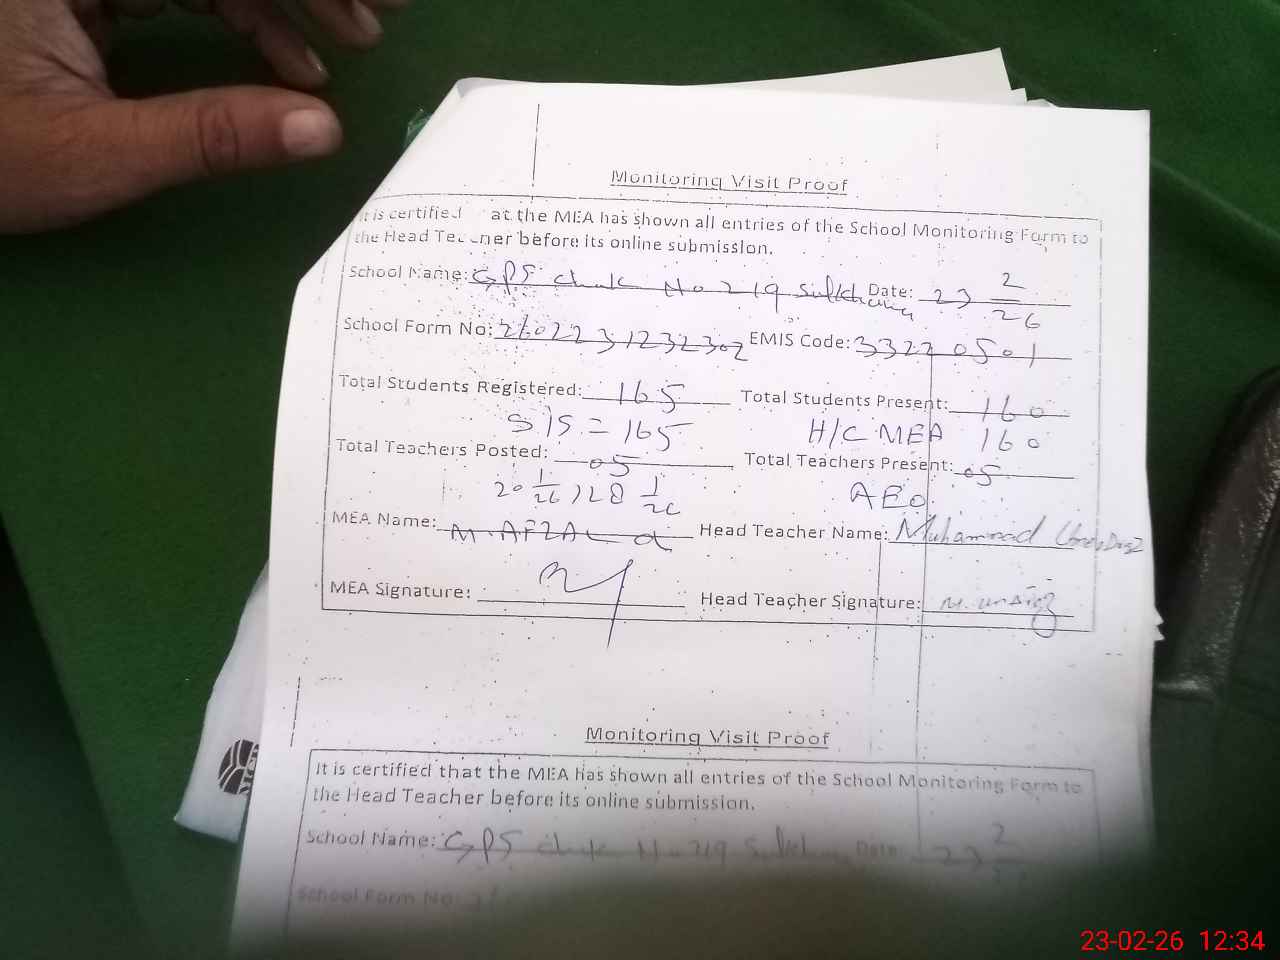 Monitoring Visit Proof
It is certified at the MEA has shown all entries of the School Monitoring Form to
the Head Teacher before its online submission.
School Name: GPS chak No 219 Date: 23 2/26
School Form No: 2602231232302 EMIS Code: 33220501
Total Students Registered: 165 Total Students Present: 160
SIS = 165 H/C MEA 160
Total Teachers Posted: 05 Total Teachers Present: 05
20 1/26, 28 1/26 AEO
MEA Name: M. AFZAL Head Teacher Name: Muhammad
MEA Signature: Head Teacher Signature:
Monitoring Visit Proof
It is certified that the MEA has shown all entries of the School Monitoring Form to
the Head Teacher before its online submission.
School Name: GPS chak No 219 Date: 23 2
School Form No:
23-02-26 12:34